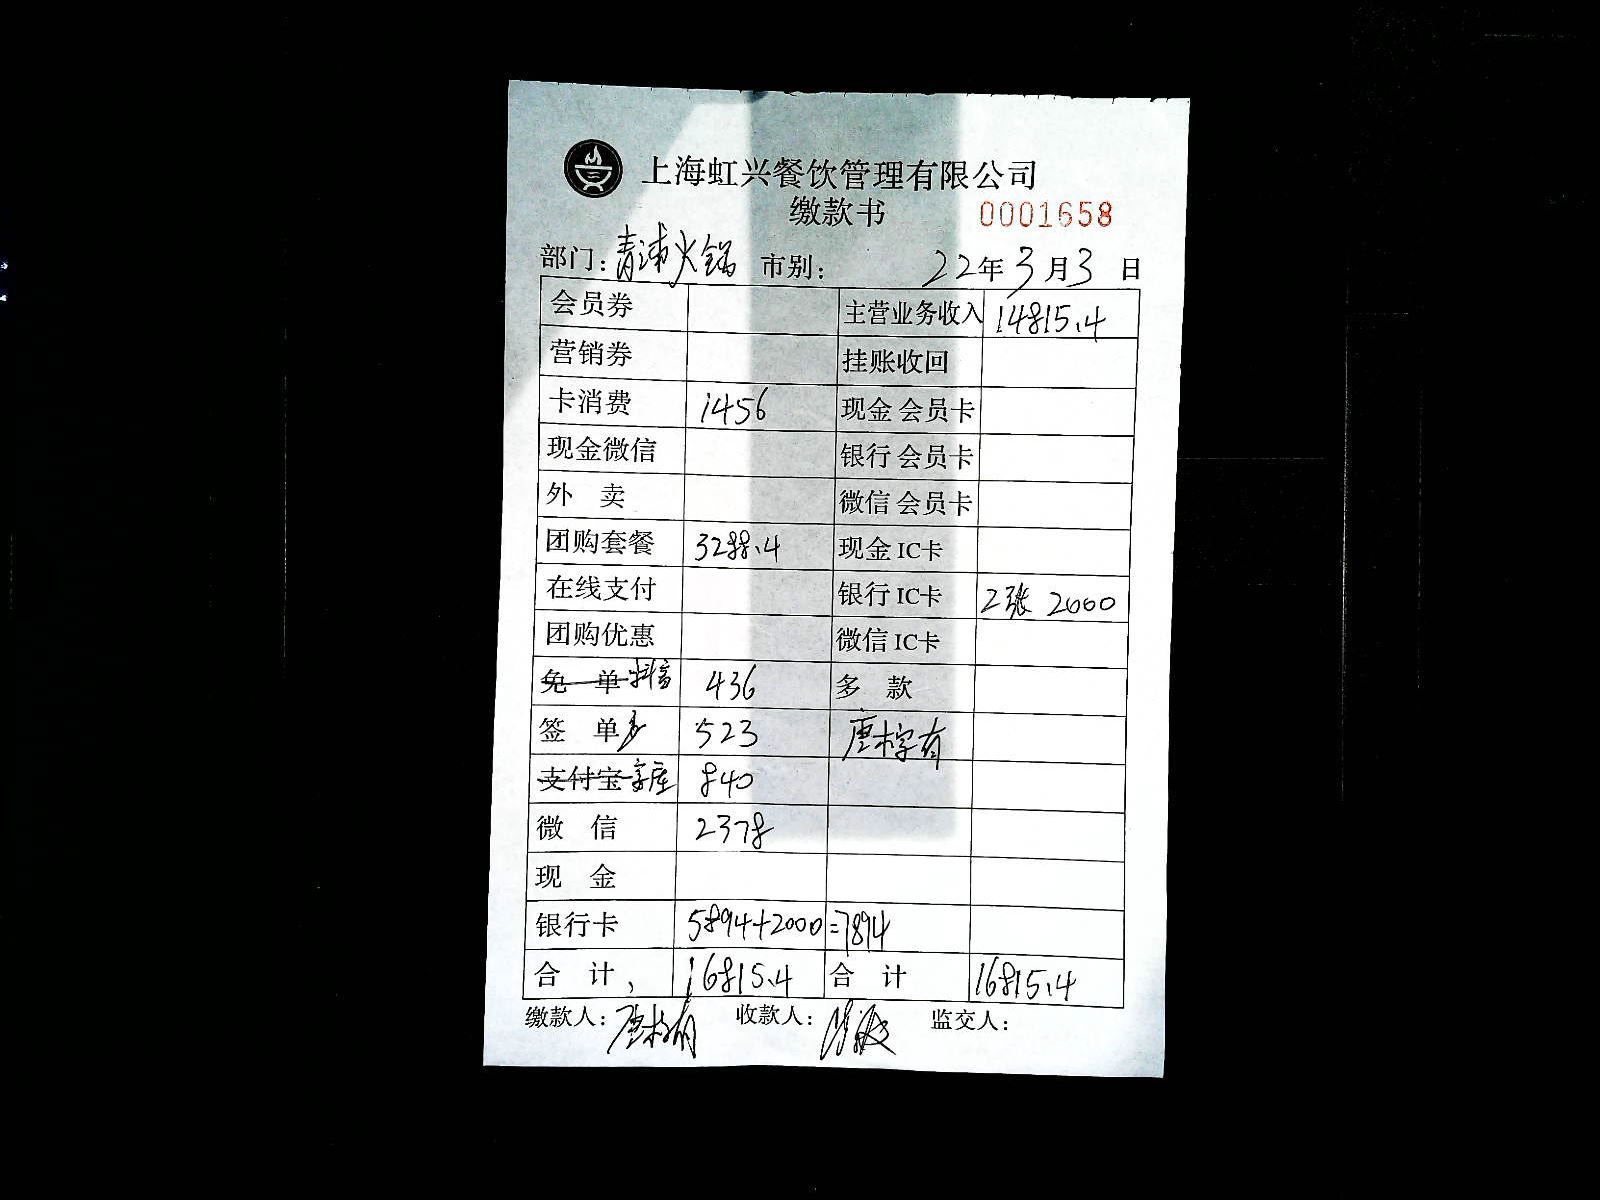 上海虹兴餐饮管理有限公司
缴款书 0001658
部门：青浦火锅 市别： 22年3月3日
会员券 主营业务收入 14815.4
营销券 挂账收回
卡消费 1456 现金会员卡
现金微信 银行会员卡
外 卖 微信会员卡
团购套餐 3288.4 现金IC卡
在线支付 银行IC卡 2张 2000
团购优惠 微信IC卡
免 单 抖音 436 多 款
签 单 523
支付宝 840
微 信 2378
现 金
银行卡 5894+2000=7894
合 计、 16815.4 合 计 16815.4
缴款人： 收款人： 监交人：